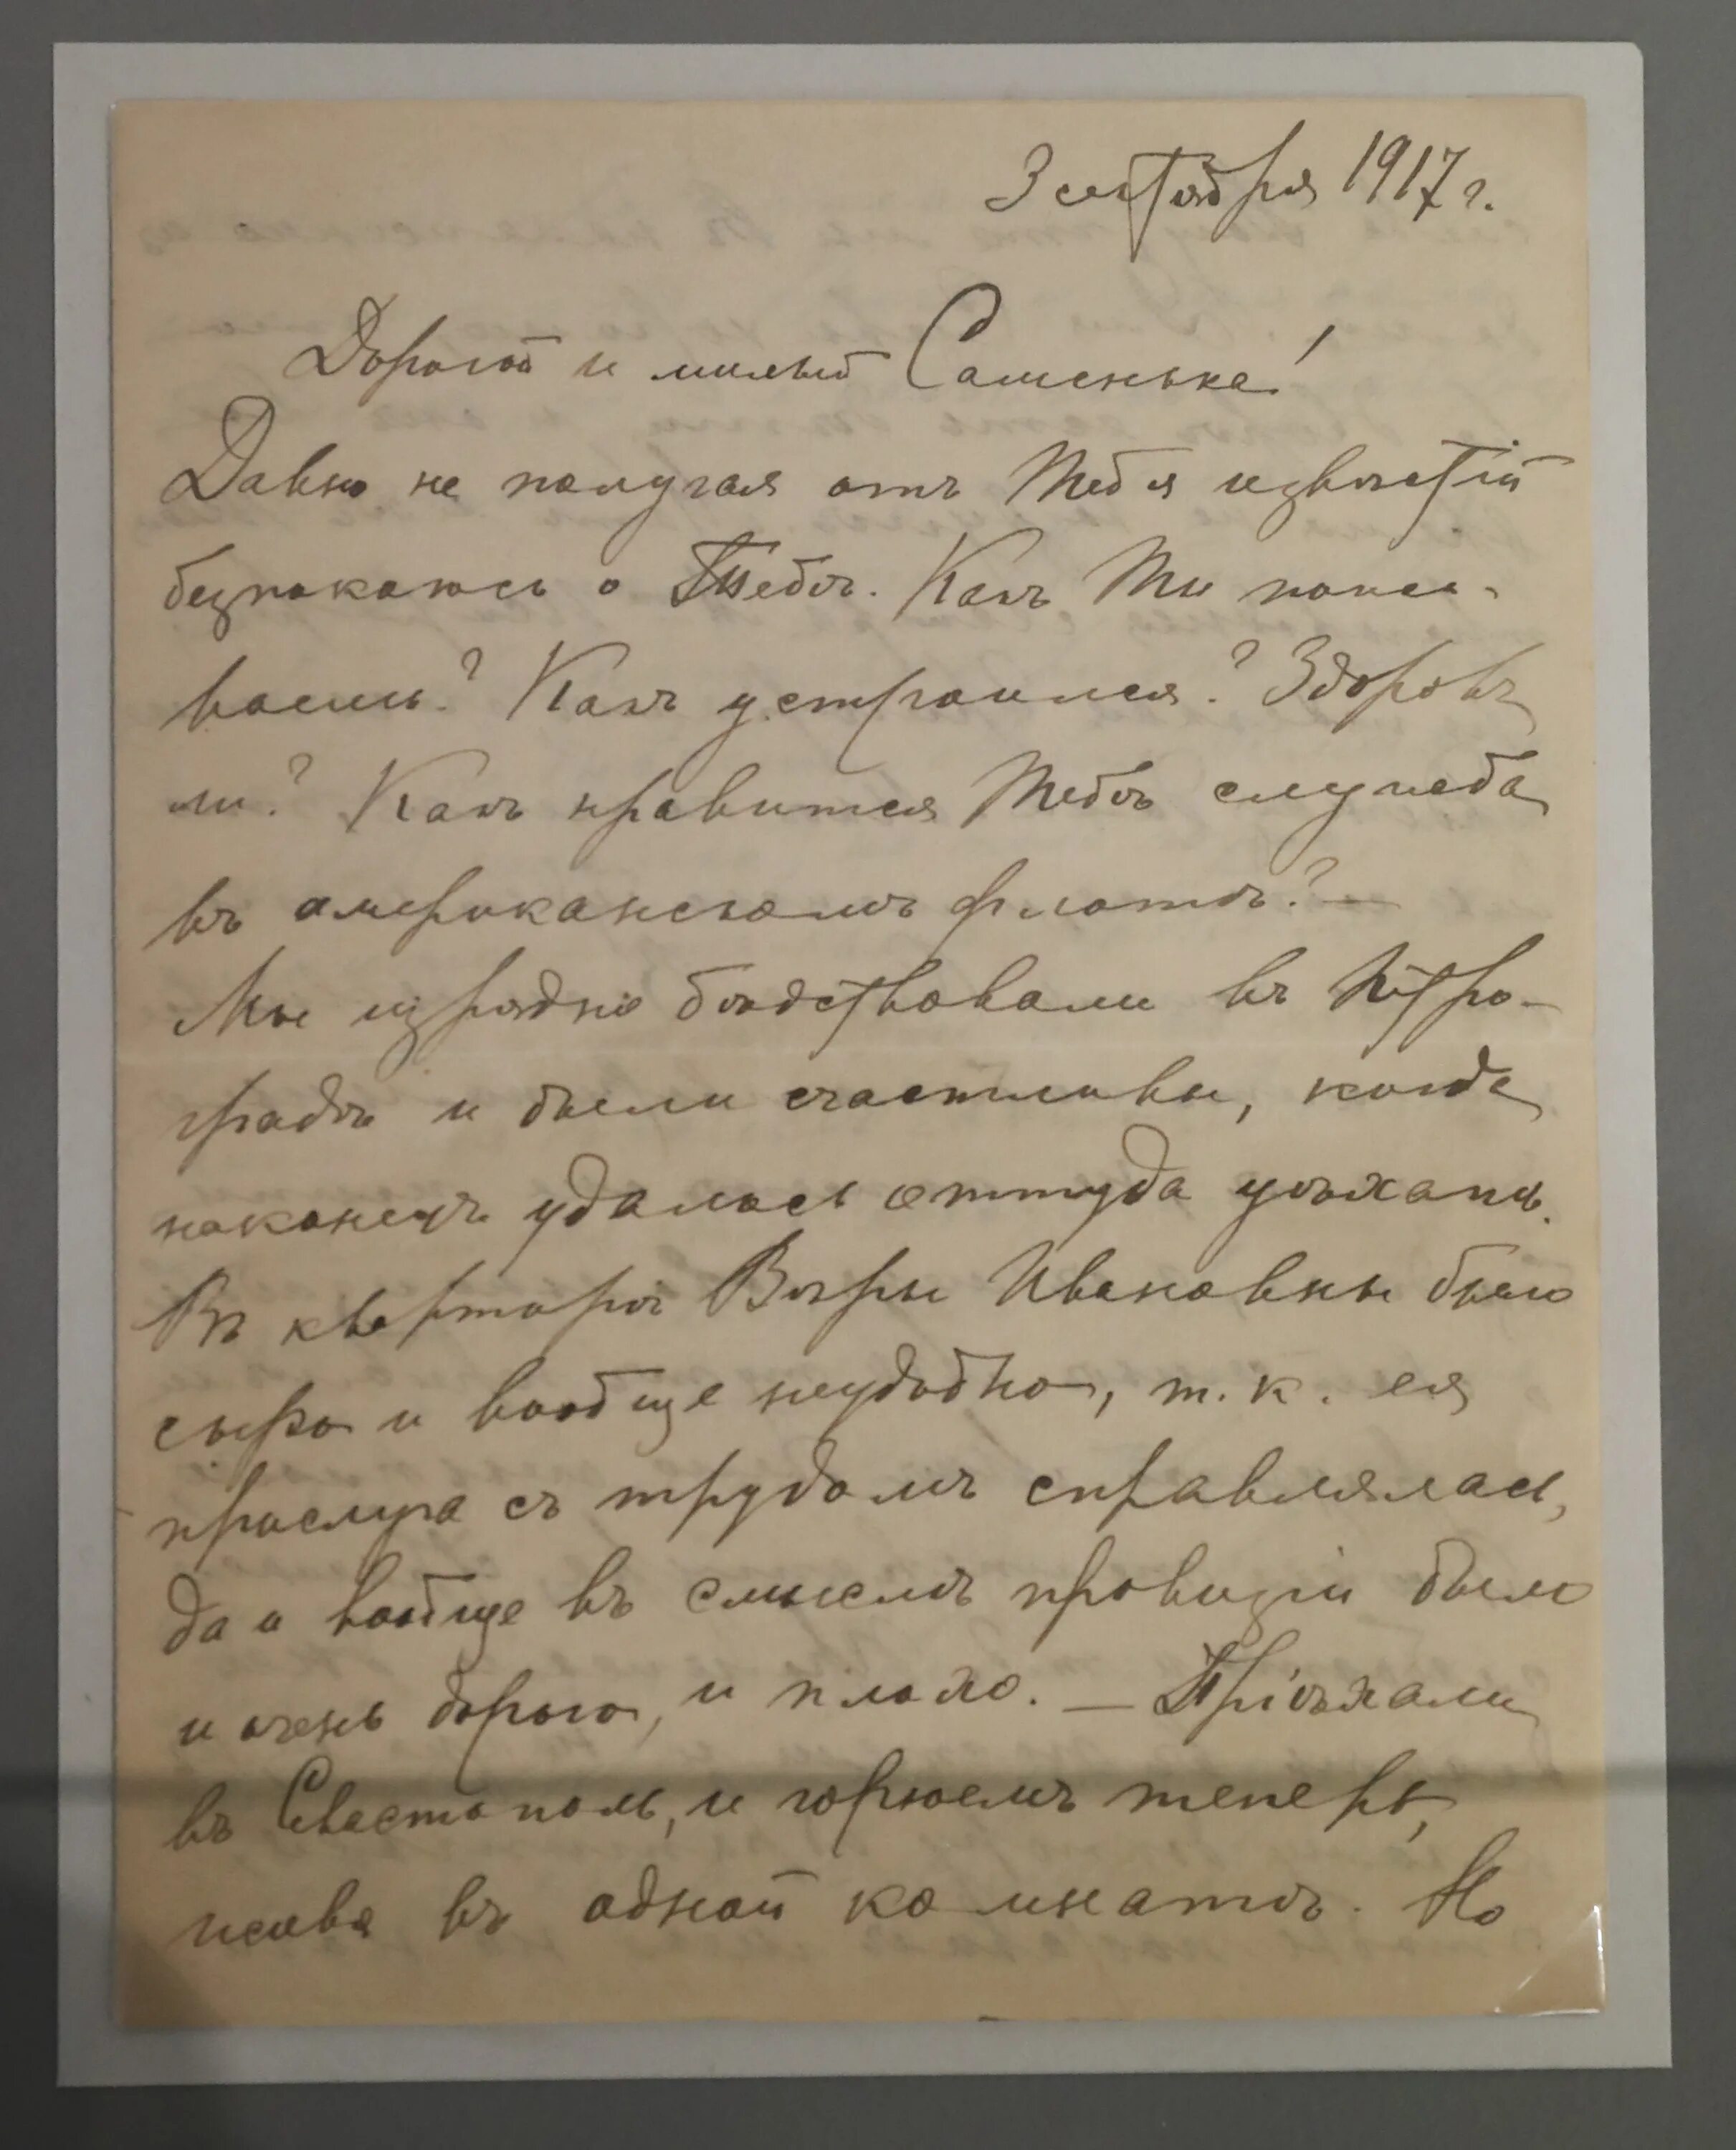 3 сентября 1917 г.
Дорогой и милый Сашенька!
Давно не получая отъ Тебя извѣстій
безпокаюсь о Тебѣ. Какъ Ты пожи-
ваешь? Какъ устроился? Здоровъ
ли? Какъ нравится Тебѣ служба
въ американскомъ флотѣ? —
Мы изрядно бѣдствовали въ Петро-
градѣ и были счастливы, когда
наконецъ удалось оттуда уѣхать.
Въ квартирѣ Вѣры Ивановны было
сыро и вообще неудобно, т. к. ея
прислуга съ трудомъ справлялась,
да и вообще въ смыслѣ провизіи было
и очень дорого, и плохо. — Пріѣхали
въ Севастополь, и горюемъ теперь,
живя въ одной комнатѣ. Но